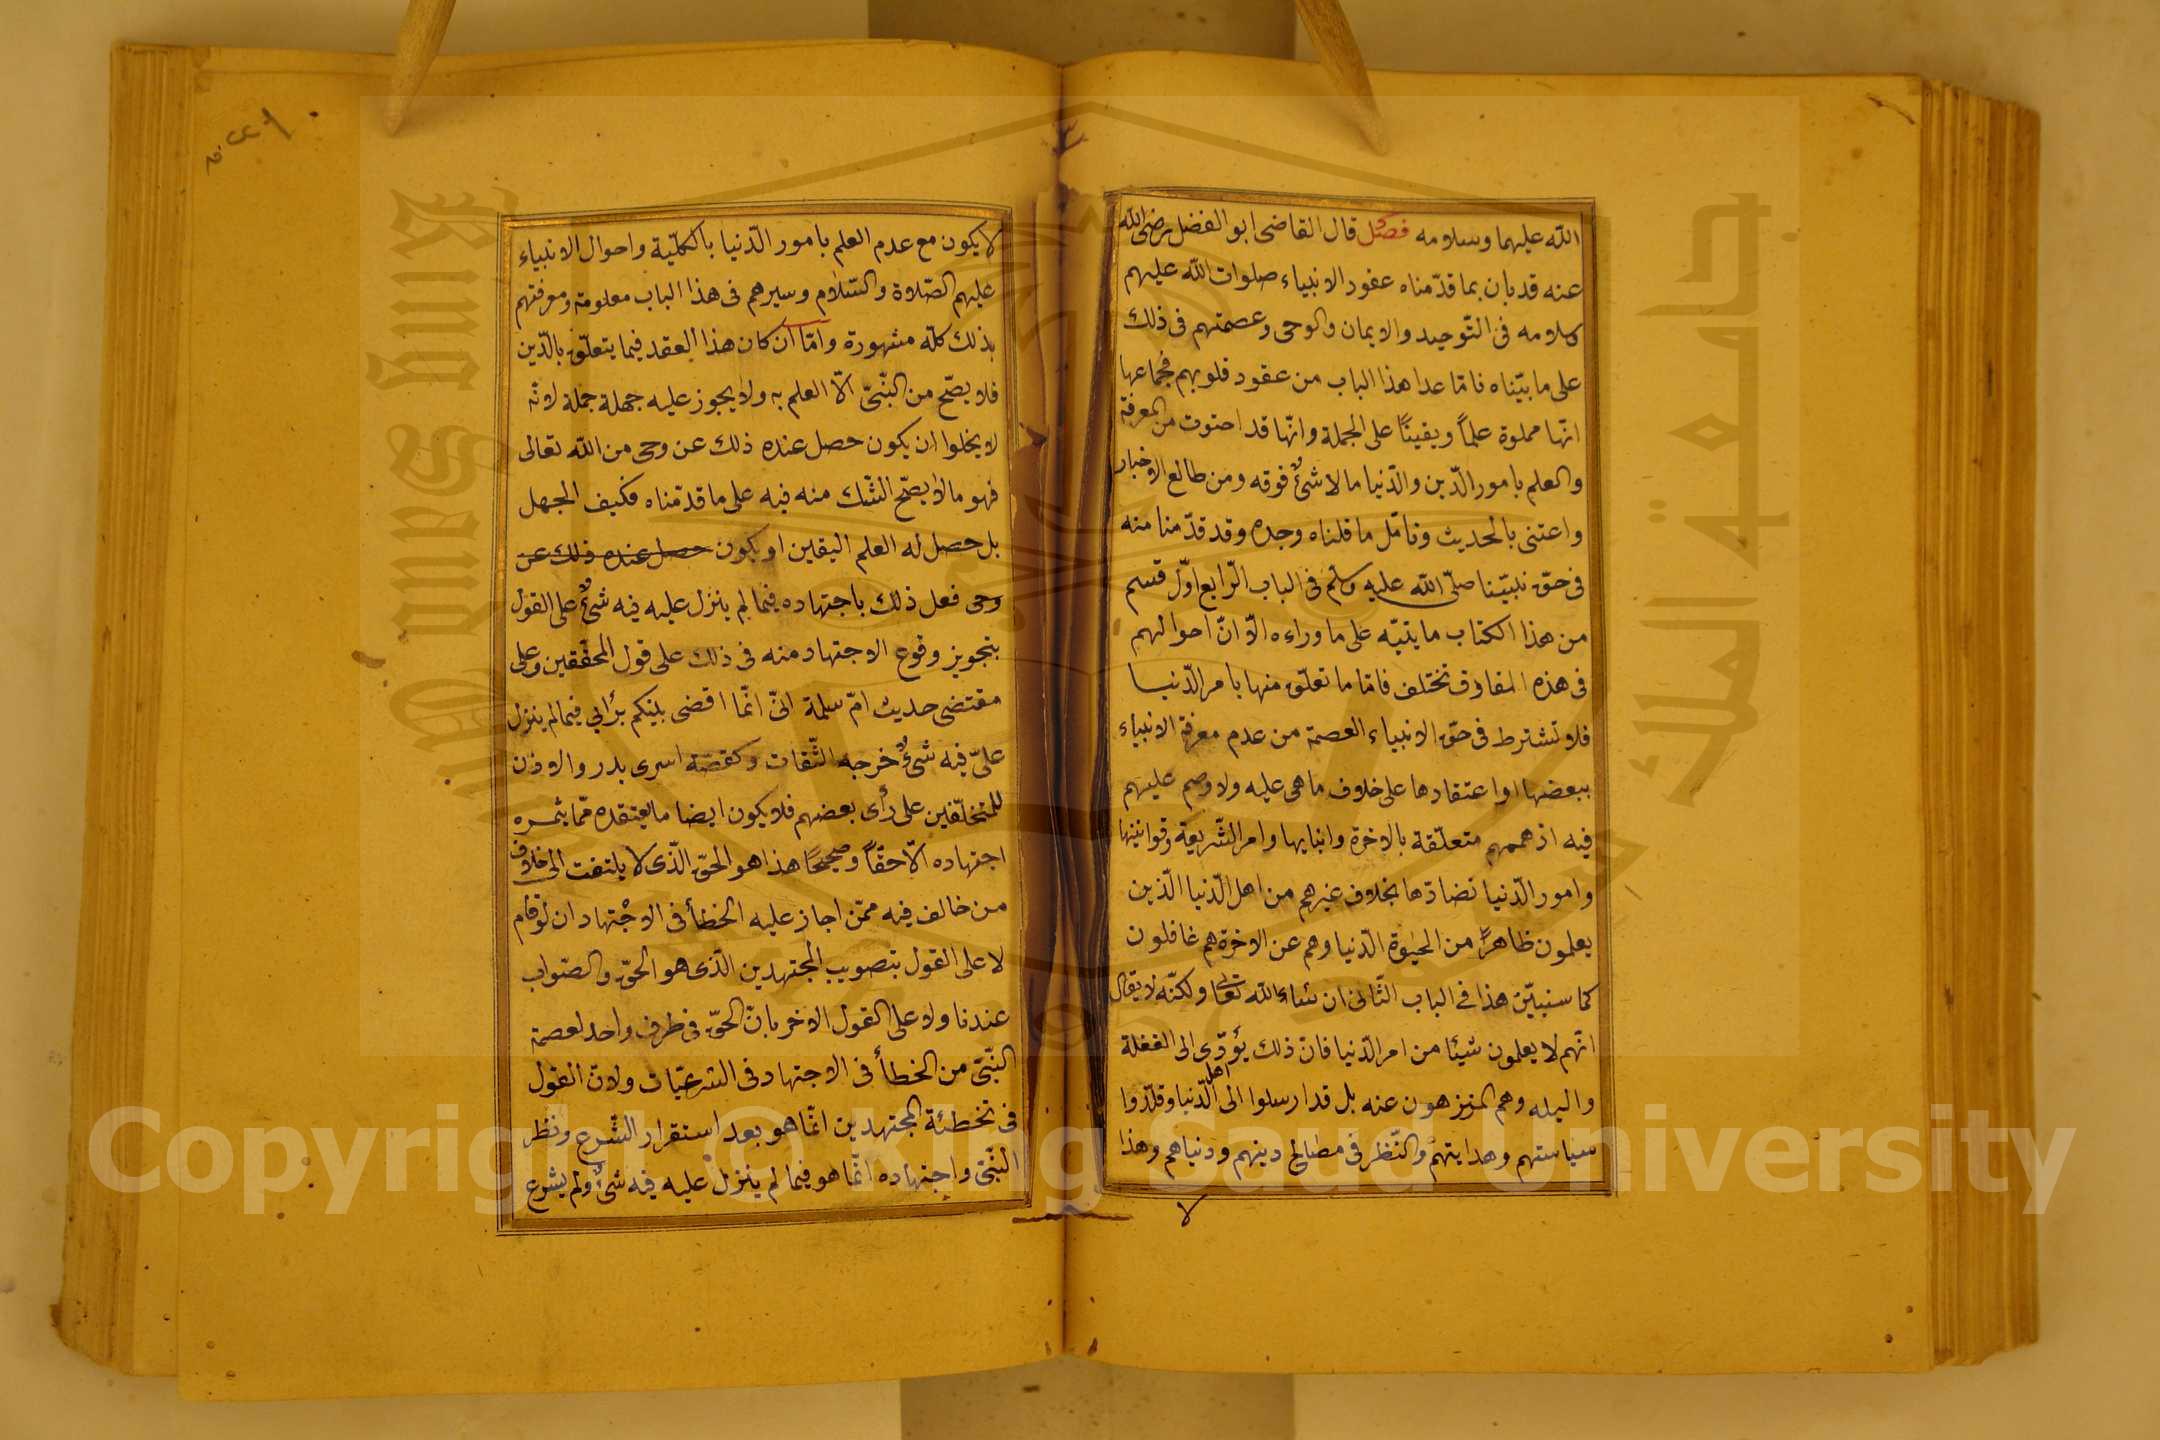 الله عليهما وسلامه فصل قال القاضى ابو الفضل رضى الله
عنه قد بان بما قدّمناه عقود الانبياء صلوات الله عليهم
وسلامه فى التّوحيد والايمان والوحى وعصمتهم فى ذلك
على ما بيّناه فامّا عدا هذا الباب من عقود قلوبهم فجماعها
انّها مملوة علمًا ويقينًا على الجملة وانّها قد احتوت من المعرفة
والعلم بامور الدّين والدّنيا ما لا شئ فوقه ومن طالع الاخبار
واعتنى بالحديث وتامّل ما قلناه وجده وقد قدّمنا منه
فى حقّ نبيّنا صلّى الله عليه وسلّم فى الباب الرّابع اوّل قسم
من هذا الكتاب ما ينبّه على ما وراءه الّا انّ احوالهم
فى هذه المعارف تختلف فامّا ما تعلّق منها بامر الدّنيا
فلا تشترط فى حقّ الانبياء العصمة من عدم معرفة الانبياء
ببعضها او اعتقادها على خلاف ما هى عليه ولا وصم عليهم
فيه اذ هممهم متعلّقة بالاخرة وانبايها وامر الشّريعة وقوانينها
وامور الدّنيا تضادّها بخلاف غيرهم من اهل الدّنيا الّذين
يعلمون ظاهرًا من الحيوة الدّنيا وهم عن الاخرة هم غافلون
كما سنبيّن هذا فى الباب الثّانى ان شاء الله تعالى ولكنّه لا يقال
انّهم لا يعلمون شيئا من امر الدّنيا فان ذلك يؤدّى الى الغفلة
والبله وهم المنزهون عنه بل قد ارسلوا الى اهل الدّنيا وقلّدوا
سياستهم وهدايتهم والنّظر فى مصالح دينهم ودنياهم وهذا
لا
لا يكون مع عدم العلم بامور الدّنيا بالكلّية واحوال الانبياء
عليهم الصّلاة والسّلام وسيرهم فى هذا الباب معلومة ومعرفتهم
بذلك كلّه مشهورة وامّا ان كان هذا العقد فيما يتعلّق بالدّين
فلا يصّح من النّبىّ الّا العلم به ولا يجوز عليه جهلة جملة لانّه
لا يخلوا ان يكون حصل عنده ذلك عن وحى من الله تعالى
فهو ما لا يصّح الشّك منه فيه على ما قدمّناه فكيف الجهل
بل حصل له العلم اليقين او يكون حصل عنده ذلك عن
وحى فعل ذلك باجتهاده فيما لم ينزل عليه فيه شئ على القول
بتجويز وقوع الاجتهاد منه فى ذلك على قول المحقّقين وعلى
مقتضى حديث امّ سلمة انّى انّما اقضى بينكم برأيى فيما لم ينزل
علىّ فيه شئ خرجه الثّقات وكقصّة اسرى بدر والاذن
للمتخلّفين على رأى بعضهم فلا يكون ايضا ما يعتقده ممّا يثمره
اجتهاده الّا حقّا وصحيحًا هذا هو الحقّ الّذى لا يلتفت الى خلاف
من خالف فيه ممّن اجاز عليه الخطأ فى الاجتهاد ان لو قام
لا على القول بتصويب المجتهدين الّذى هو الحقّ والصّواب
عندنا ولا على القول الاخر بانّ الحقّ فى طرف واحد لعصمة
النّبّى من الخطأ فى الاجتهاد فى الشرعيّات ولان القول
فى تخطئة المجتهدين انّما هو بعد استقرار الشّرع ونظر
النّبّى واجتهاده انّما هو فيما لم ينزل عليه فيه شئ ولم يشرع
جامعة الملك سعود
King Saud University
Copyright © King Saud University